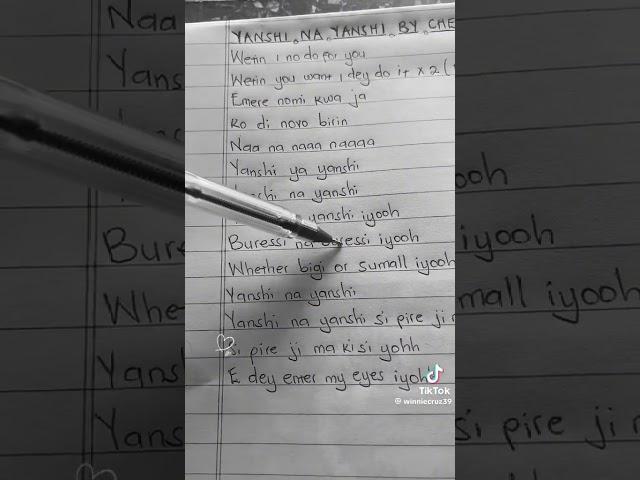 YANSHI NA YANSHI BY CHE
Wetin I no do for you
Wetin you want I dey do it x 2 (
Emere nomi kwa ja
Ko di novo birin
Naa na naaa naaaa
Yanshi ya yanshi
na yanshi
yanshi iyooh
Buressi na iyooh
Whether bigi or sumall iyooh
Yanshi na yanshi
Yanshi na yanshi si pire ji
si pire ji ma kisi yohh
E dey emer my eyes iyoh
TikTok
@winniecruz39